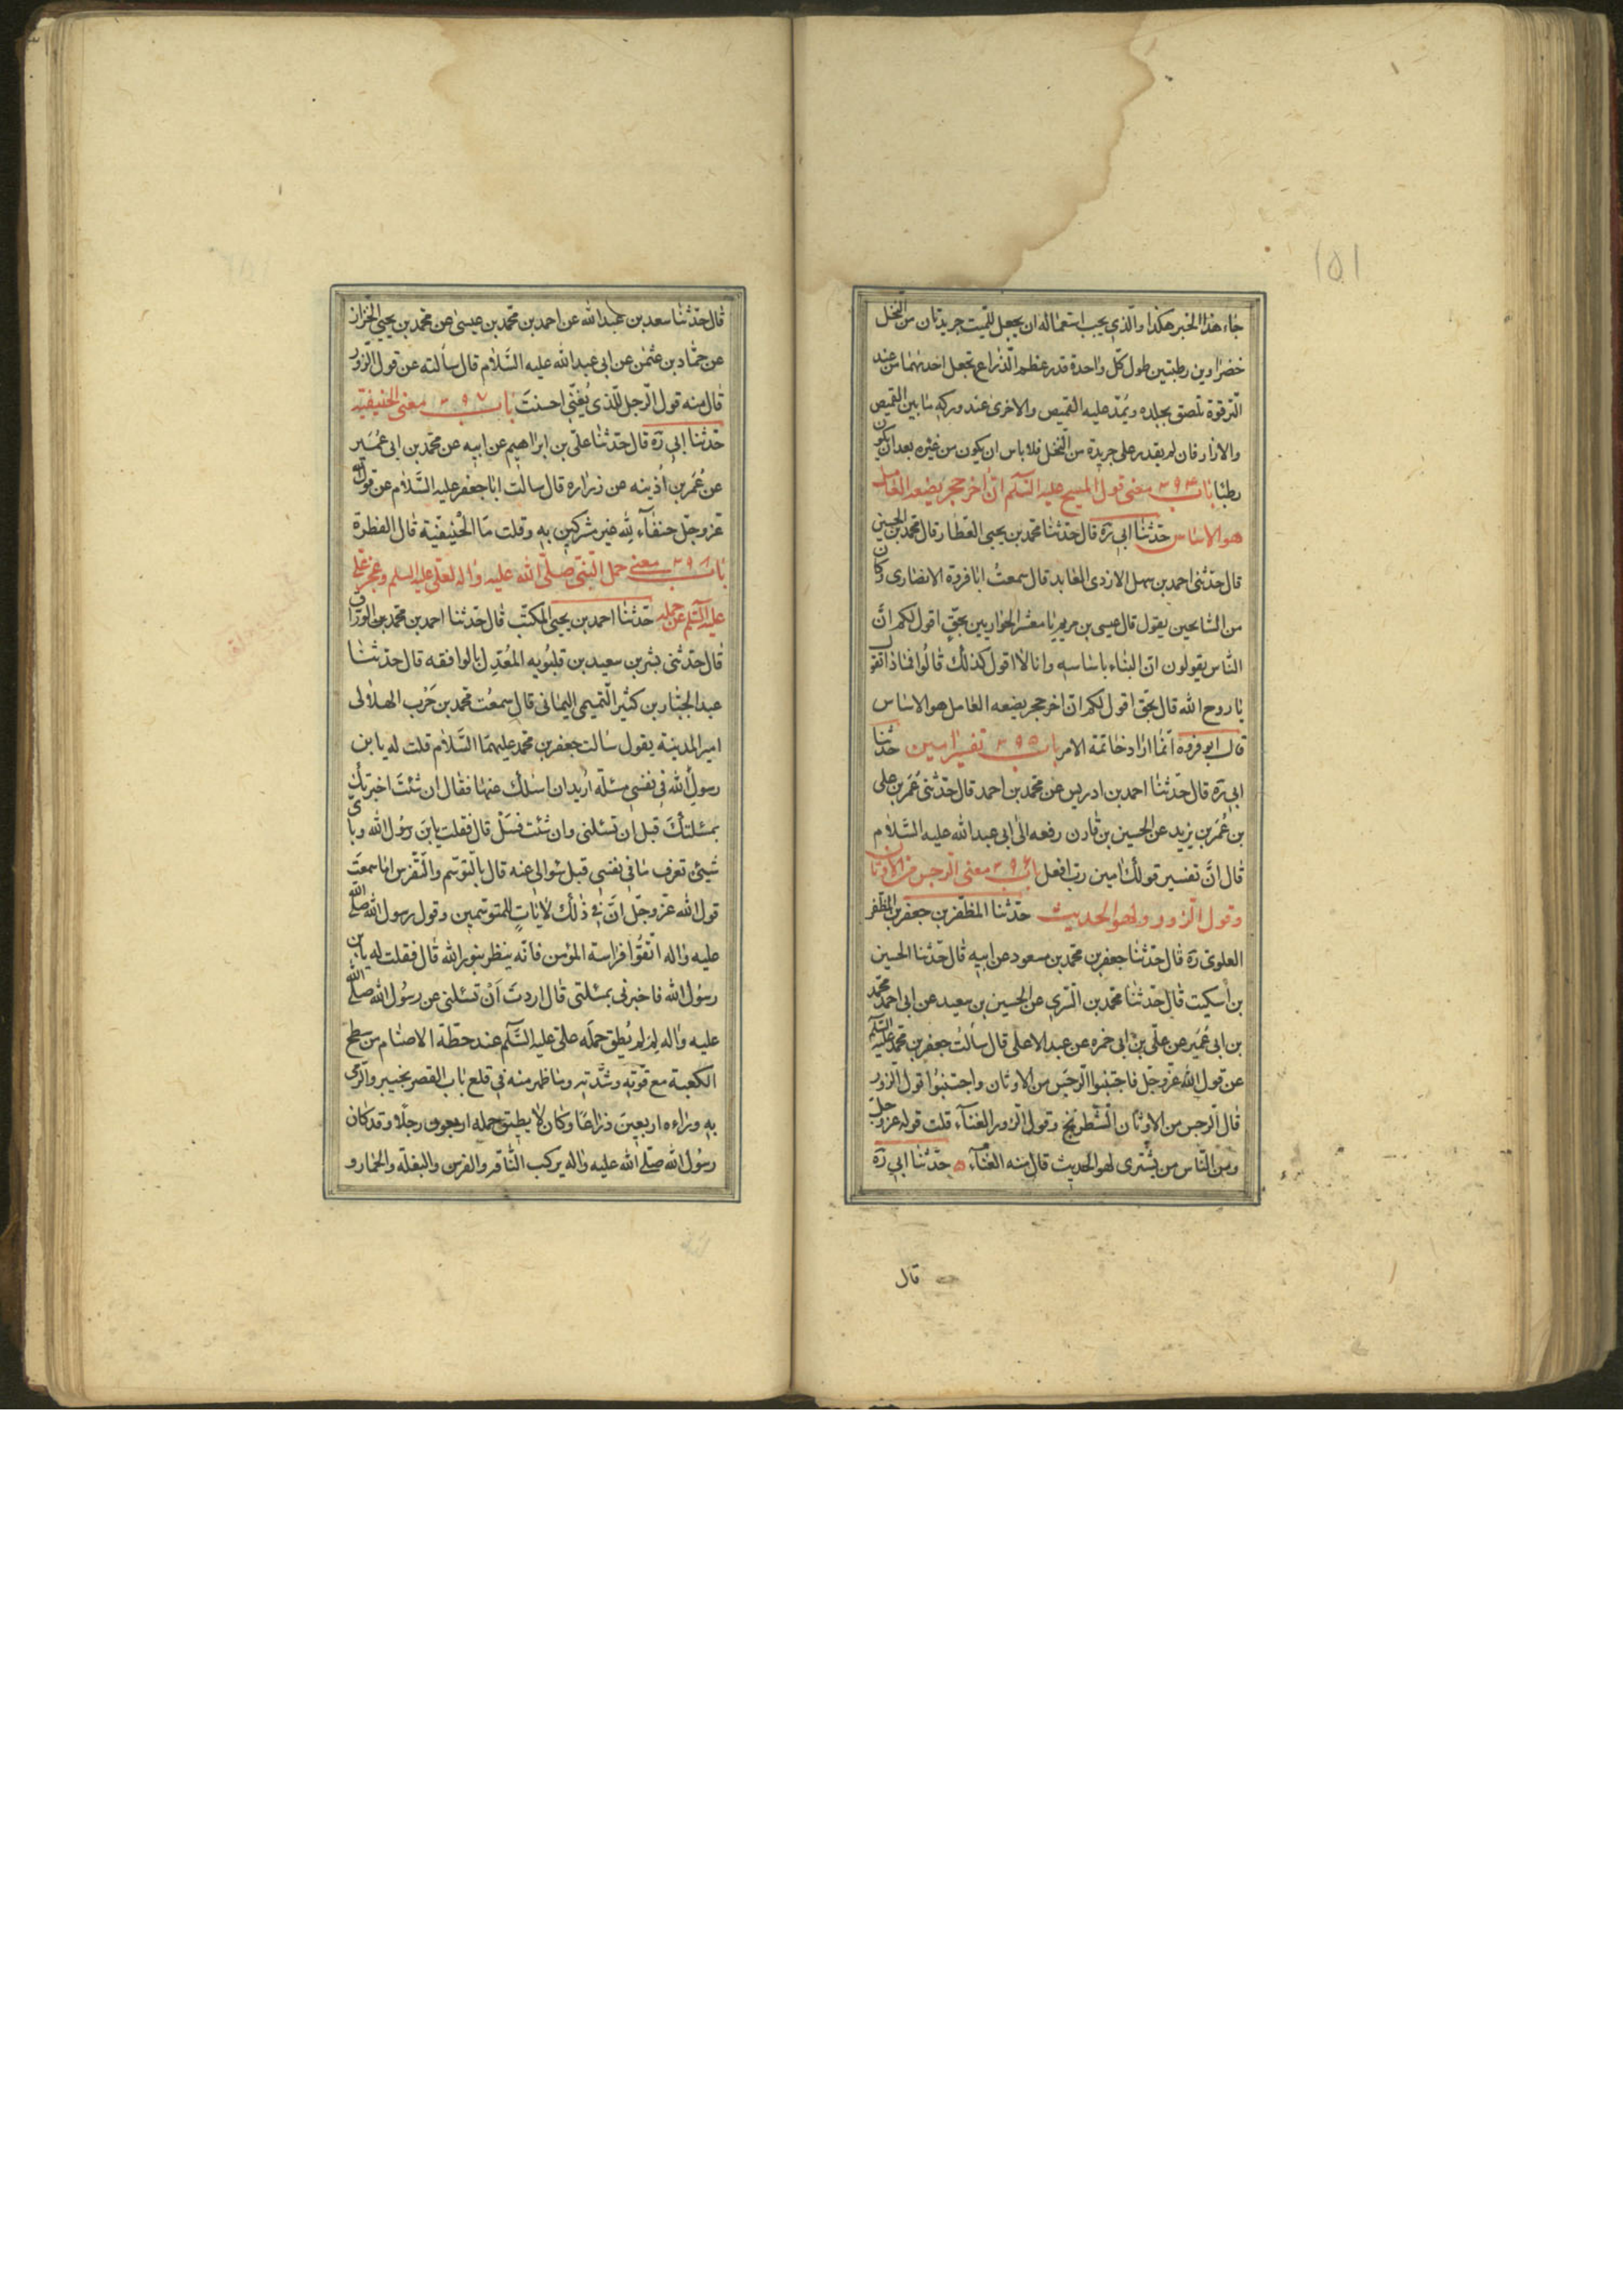 ١٥١
جاء هذا الخبر هكذا والذي يجب استعماله ان يجعل للميت جريدتان من النخل
خضراوين رطبتين طول كل واحدة قدر عظم الذراع تجعل احدىهما من عند
الترقوة تلصق بجلده ويمد عليه القميص والاخرى عند وركه ما بين القميص
والازار فان لم يقدر على جريدة من النخل فلا باس ان يكون من غيره بعد ان يكون
رطبا باب ٣٩٤ معنى قول المسيح عليه السلم ان اخر حجر يضعه العامل
هو الاساس حدثنا ابي ره قال حدثنا محمد بن يحيى العطار قال محمد بن الحسين
قال حدثنى احمد بن سهل الازدى العابد قال سمعت ابا فروة الانصارى وكان
من السايحين يقول قال عيسى بن مريم يا معشر الحواريين بحق اقول لكم ان
الناس يقولون ان البناء باساسه وانا لا اقول كذلك قالوا فماذا تقول
يا روح الله قال بحق اقول لكم ان اخر حجر يضعه العامل هو الاساس
قال ابو فروة انما اراد خاتمة الامر باب ٣٩٥ تفسير امين حدثنا
ابي ره قال حدثنا احمد بن ادريس عن محمد بن احمد قال حدثنى عمر بن على
بن عمر بن يزيد عن الحسين بن قارن رفعه الى ابى عبد الله عليه السلام
قال ان تفسير قولك امين رب افعل باب ٣٩٦ معنى الرجس من الاوثان
وقول الزور ولهو الحديث حدثنا المظفر بن جعفر بن المظفر
العلوى ره قال حدثنا جعفر بن محمد بن مسعود عن ابيه قال حدثنا الحسين
بن اسكيت قال حدثنا محمد بن السري عن الحسين بن سعيد عن ابى احمد محمد
بن ابى عمير عن على بن ابى حمزه عن عبد الاعلى قال سألت جعفر بن محمد عليه السلم
عن قول الله عز وجل فاجتنبوا الرجس من الاوثان واجتنبوا قول الزور
قال الرجس من الاوثان الشطرنج وقول الزور الغناء قلت قوله عز وجل
ومن الناس من يشترى لهو الحديث قال منه الغناء حدثنا ابي ره
قال
قال حدثنا سعد بن عبد الله عن احمد بن محمد بن عيسى عن محمد بن يحيى الخزاز
عن حماد بن عثمن عن ابى عبد الله عليه السلام قال سألته عن قول الزور
قال منه قول الرجل للذى يغنى احسنت باب ٣٩٧ معنى الحنيفية
حدثنا ابي ره قال حدثنا على بن ابراهيم عن ابيه عن محمد بن ابى عمير
عن عمر بن اذينه عن زراره قال سالت ابا جعفر عليه السلام عن قول الله
عز وجل حنفاء لله غير مشركين به وقلت ما الحنيفية قال الفطرة
باب ٣٩٨ معنى حمل النبى صلى الله عليه واله لعلى عليه السلم وعجز على
عليه السلم عن حمله حدثنا احمد بن يحيى المكتب قال حدثنا احمد بن محمد بن الوراق
قال حدثنى بشر بن سعيد بن قلبويه المعدل بالوافقه قال حدثنا
عبد الجبار بن كثير التميمى اليمانى قال سمعت محمد بن حرب الهلالى
امير المدينة يقول سالت جعفر بن محمد عليهما السلام قلت له يا بن
رسول الله فى نفسى مسئلة اريد ان اسئلك عنها فقال ان شئت اخبرتك
بمسئلتك قبل ان تسئلنى وان شئت فسل قال فقلت يا بن رسول الله وباى
شيئ تعرف ما فى نفسى قبل سوالى عنه قال بالتوسم والتفرس اما سمعت
قول الله عز وجل ان فى ذلك لايات للمتوسمين وقول رسول الله صلى الله
عليه واله اتقوا فراسة المؤمن فانه ينظر بنور الله قال فقلت له يا بن
رسول الله فاخبرنى بمسئلتى قال اردت ان تسئلنى عن رسول الله صلى الله
عليه واله لم لم يطق حمله على عليه السلم عند حطة الاصنام من سطح
الكعبة مع قوته وشدته وما ظهر منه فى قلع باب القصر بخيبر والرمى
به وراءه اربعين ذراعا وكان لا يطيق حمله اربعون رجلا وقد كان
رسول الله صلى الله عليه واله يركب الناقر والفرس والبغلة والحمار و